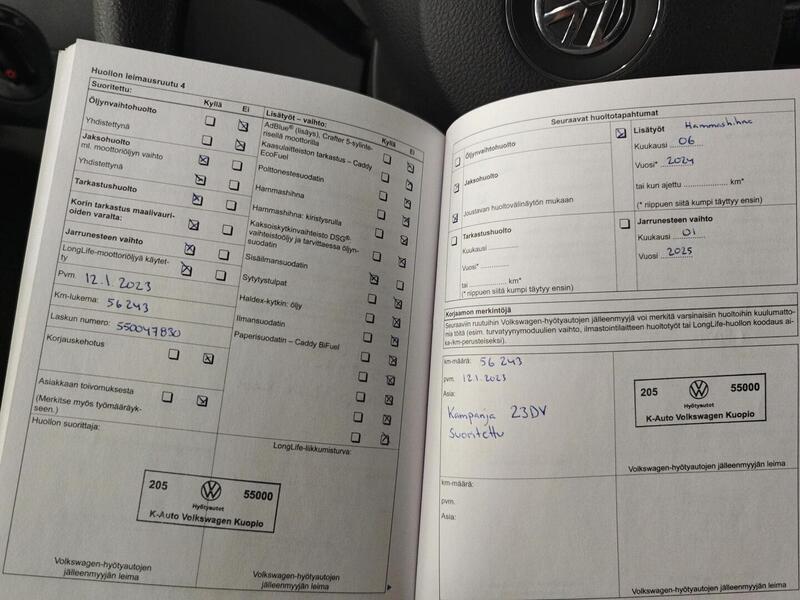 Huollon leimausruutu 4
Suoritettu:
Kyllä
Ei
Öljynvaihtohuolto
Yhdistettynä
Jaksohuolto
ml. moottoriöljyn vaihto
Yhdistettynä
Tarkastushuolto
Korin tarkastus maalivauri-
oiden varalta:
Jarrunesteen vaihto
LongLife-moottoriöljyä käytet-
ty
Pvm. 12.1.2023
Km-lukema: 56243
Laskun numero: 550047830
Korjauskehotus
Asiakkaan toivomuksesta
(Merkitse myös työmääräyk-
seen.)
Huollon suorittaja:
205
55000
Hyötyautot
K-Auto Volkswagen Kuopio
Volkswagen-hyötyautojen
jälleenmyyjän leima
Lisätyöt – vaihto:
Kyllä
Ei
AdBlue® (lisäys), Crafter 5-sylinte-
risellä moottorilla
Kaasulaitteiston tarkastus – Caddy
EcoFuel
Polttonestesuodatin
Hammashihna
Hammashihna: kiristysrulla
Kaksoiskytkinvaihteisto DSG®-
vaihteistoöljy ja tarvittaessa öljyn-
suodatin
Sisäilmansuodatin
Sytytystulpat
Haldex-kytkin: öljy
Ilmansuodatin
Paperisuodatin – Caddy BiFuel
LongLife-liikkumisturva:
Volkswagen-hyötyautojen
jälleenmyyjän leima
Seuraavat huoltotapahtumat
Öljynvaihtohuolto
Jaksohuolto
Joustavan huoltovälinäytön mukaan
Tarkastushuolto
Kuukausi
Vuosi*
tai ............ km*
(* riippuen siitä kumpi täyttyy ensin)
Lisätyöt Hammashihna
Kuukausi 06
Vuosi* 2024
tai kun ajettu ............ km*
(* riippuen siitä kumpi täyttyy ensin)
Jarrunesteen vaihto
Kuukausi 01
Vuosi 2025
Korjaamon merkintöjä
Seuraaviin ruutuihin Volkswagen-hyötyautojen jälleenmyyjä voi merkitä varsinaisiin huoltoihin kuulumatto-
mia töitä (esim. turvatyynymoduulien vaihto, ilmastointilaitteen huoltotyöt tai LongLife-huollon koodaus ai-
ka-/km-perusteiseksi).
km-määrä: 56 243
pvm. 12.1.2023
Asia:
Kampanja 23DV
Suoritettu
205
55000
Hyötyautot
K-Auto Volkswagen Kuopio
Volkswagen-hyötyautojen jälleenmyyjän leima
km-määrä:
pvm.
Asia:
Volkswagen-hyötyautojen jälleenmyyjän leima